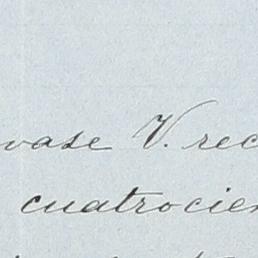 vase V. rec
cuatrocien